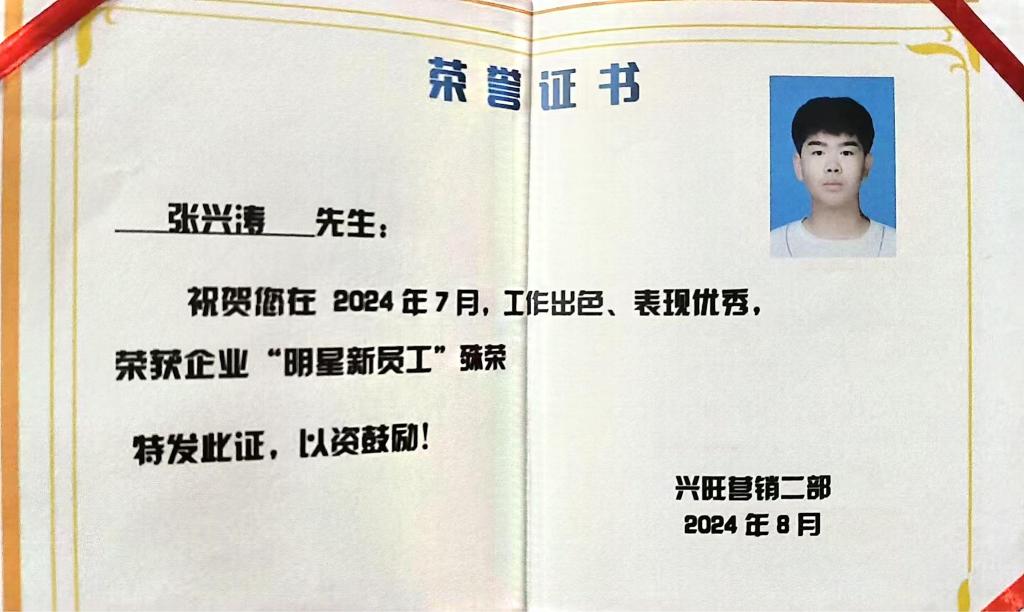 荣誉证书
张兴涛 先生：
祝贺您在 2024 年 7 月，工作出色、表现优秀，
荣获企业“明星新员工”殊荣
特发此证，以资鼓励！
兴旺营销二部
2024 年 8 月